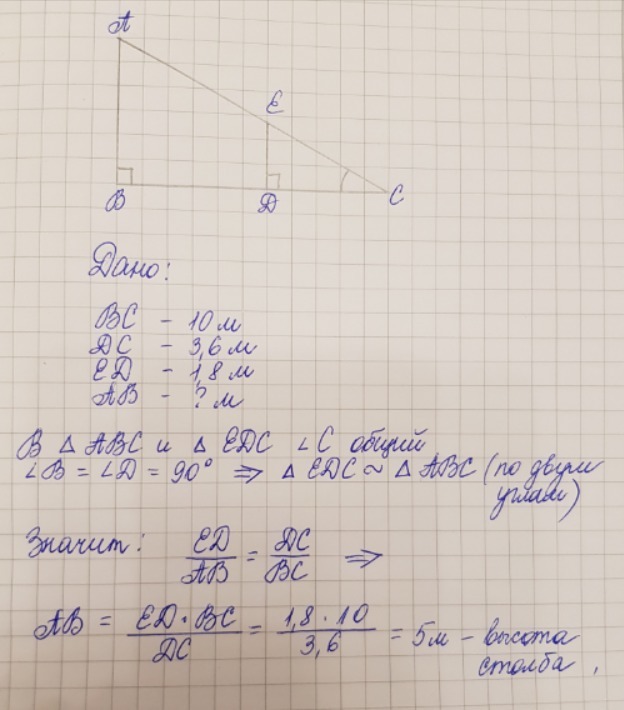 A
E
B
D
C
Дано:
BC - 10 м
DC - 3,6 м
ED - 1,8 м
AB - ? м
В △ ABC и △ EDC ∠C общий
∠B = ∠D = 90° ⇒ △ EDC ~ △ ABC (по двум
углам)
Значит: ED/AB = DC/BC ⇒
AB = ED · BC/DC = 1,8 · 10/3,6 = 5 м - высота
столба.